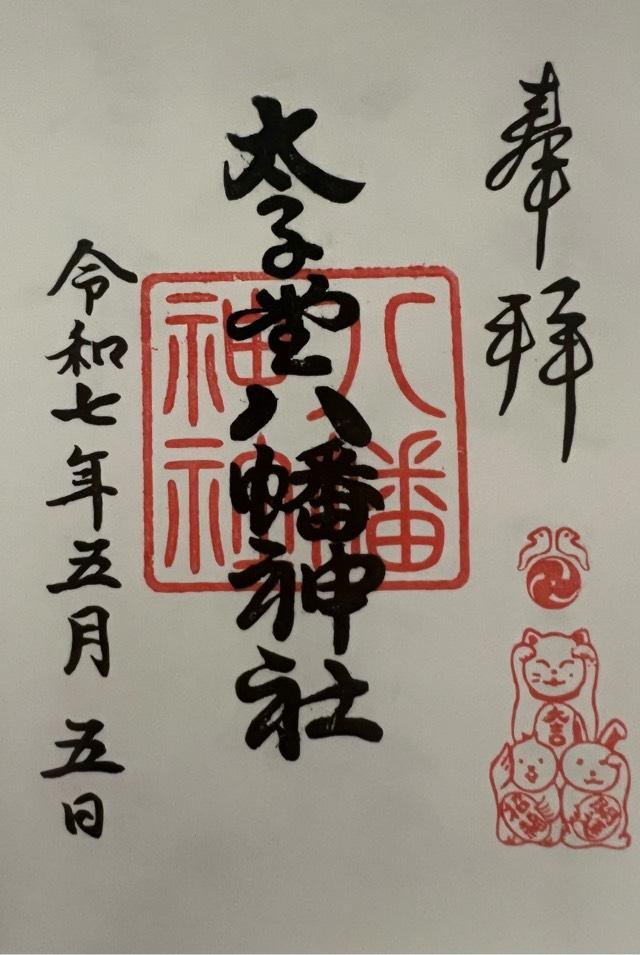 奉拝
太子堂八幡神社
八幡
神社
令和七年五月五日
大吉